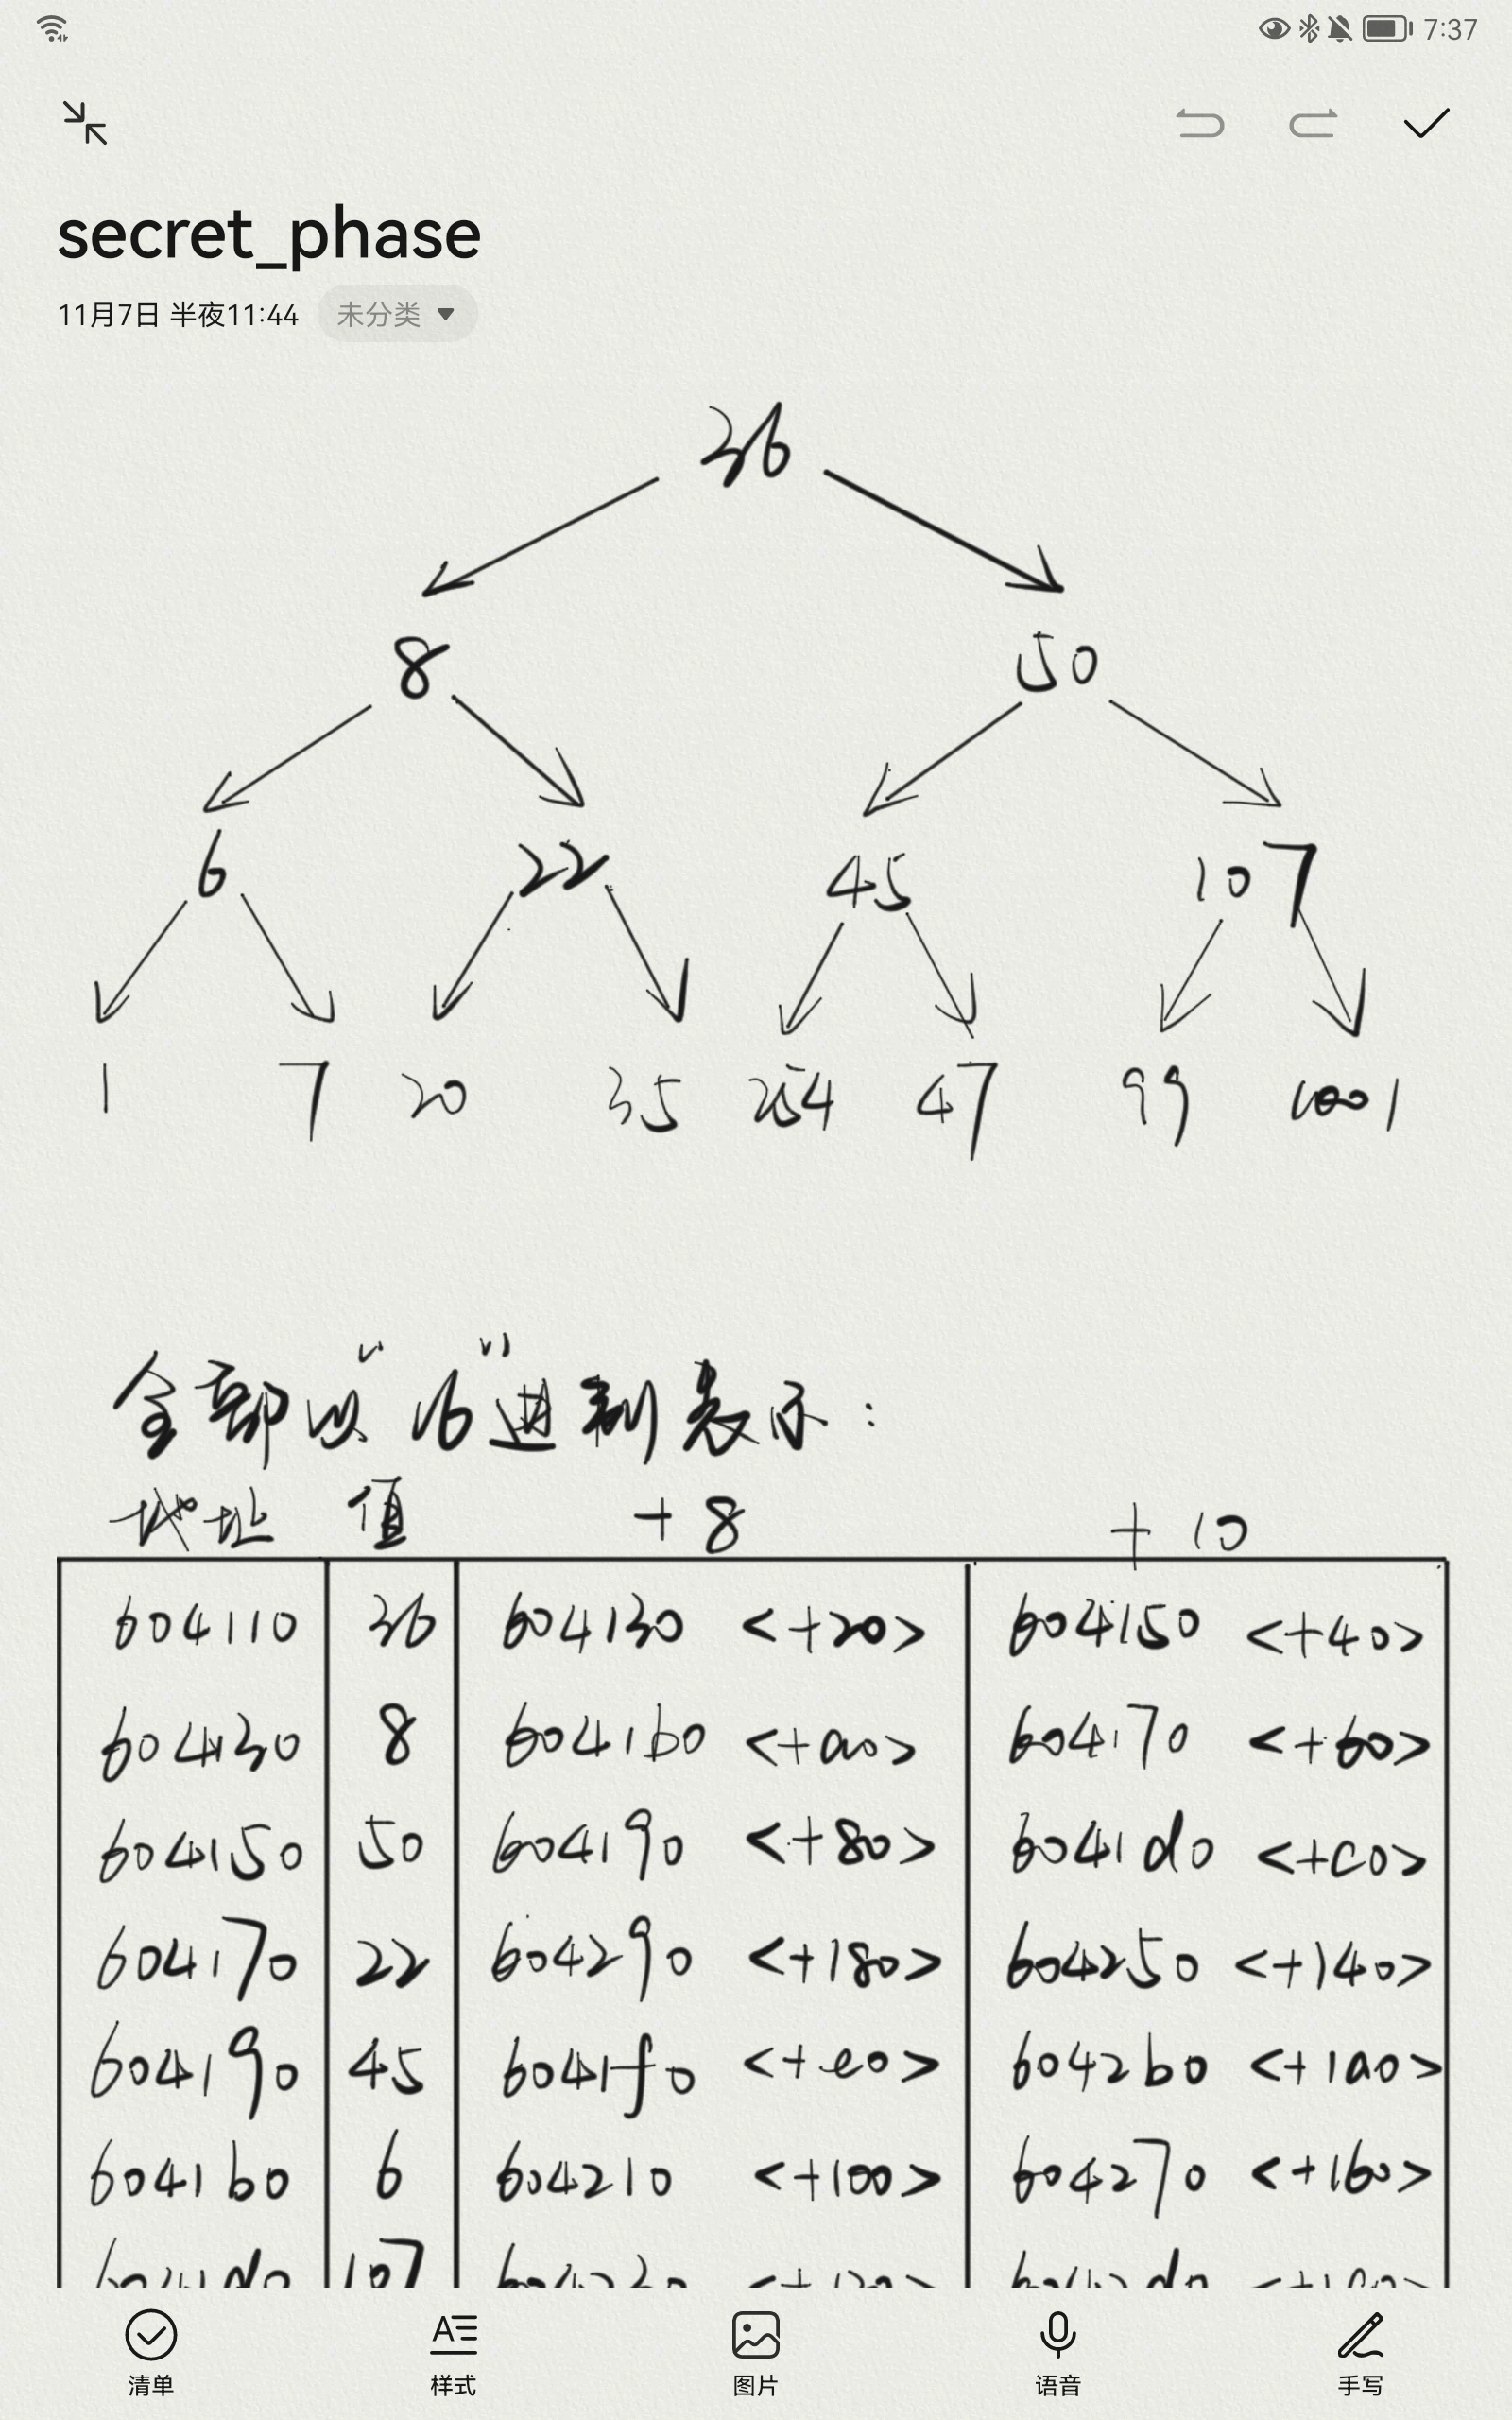 7:37
secret_phase
11月7日 半夜11:44 未分类
36
8 50
6 22 45 107
1 7 20 35 47 99 1001
全部以"16"进制表示：
地址 值 +8 +10
604110 36 604130 <+20> 604150 <+40>
604130 8 6041b0 <+a0> 604170 <+60>
604150 50 604190 <+80> 6041d0 <+c0>
604170 22 604290 <+180> 604250 <+140>
604190 45 6041f0 <+e0> 6042b0 <+1a0>
6041b0 6 604210 <+100> 604270 <+160>
6041d0 107
清单 样式 图片 语音 手写